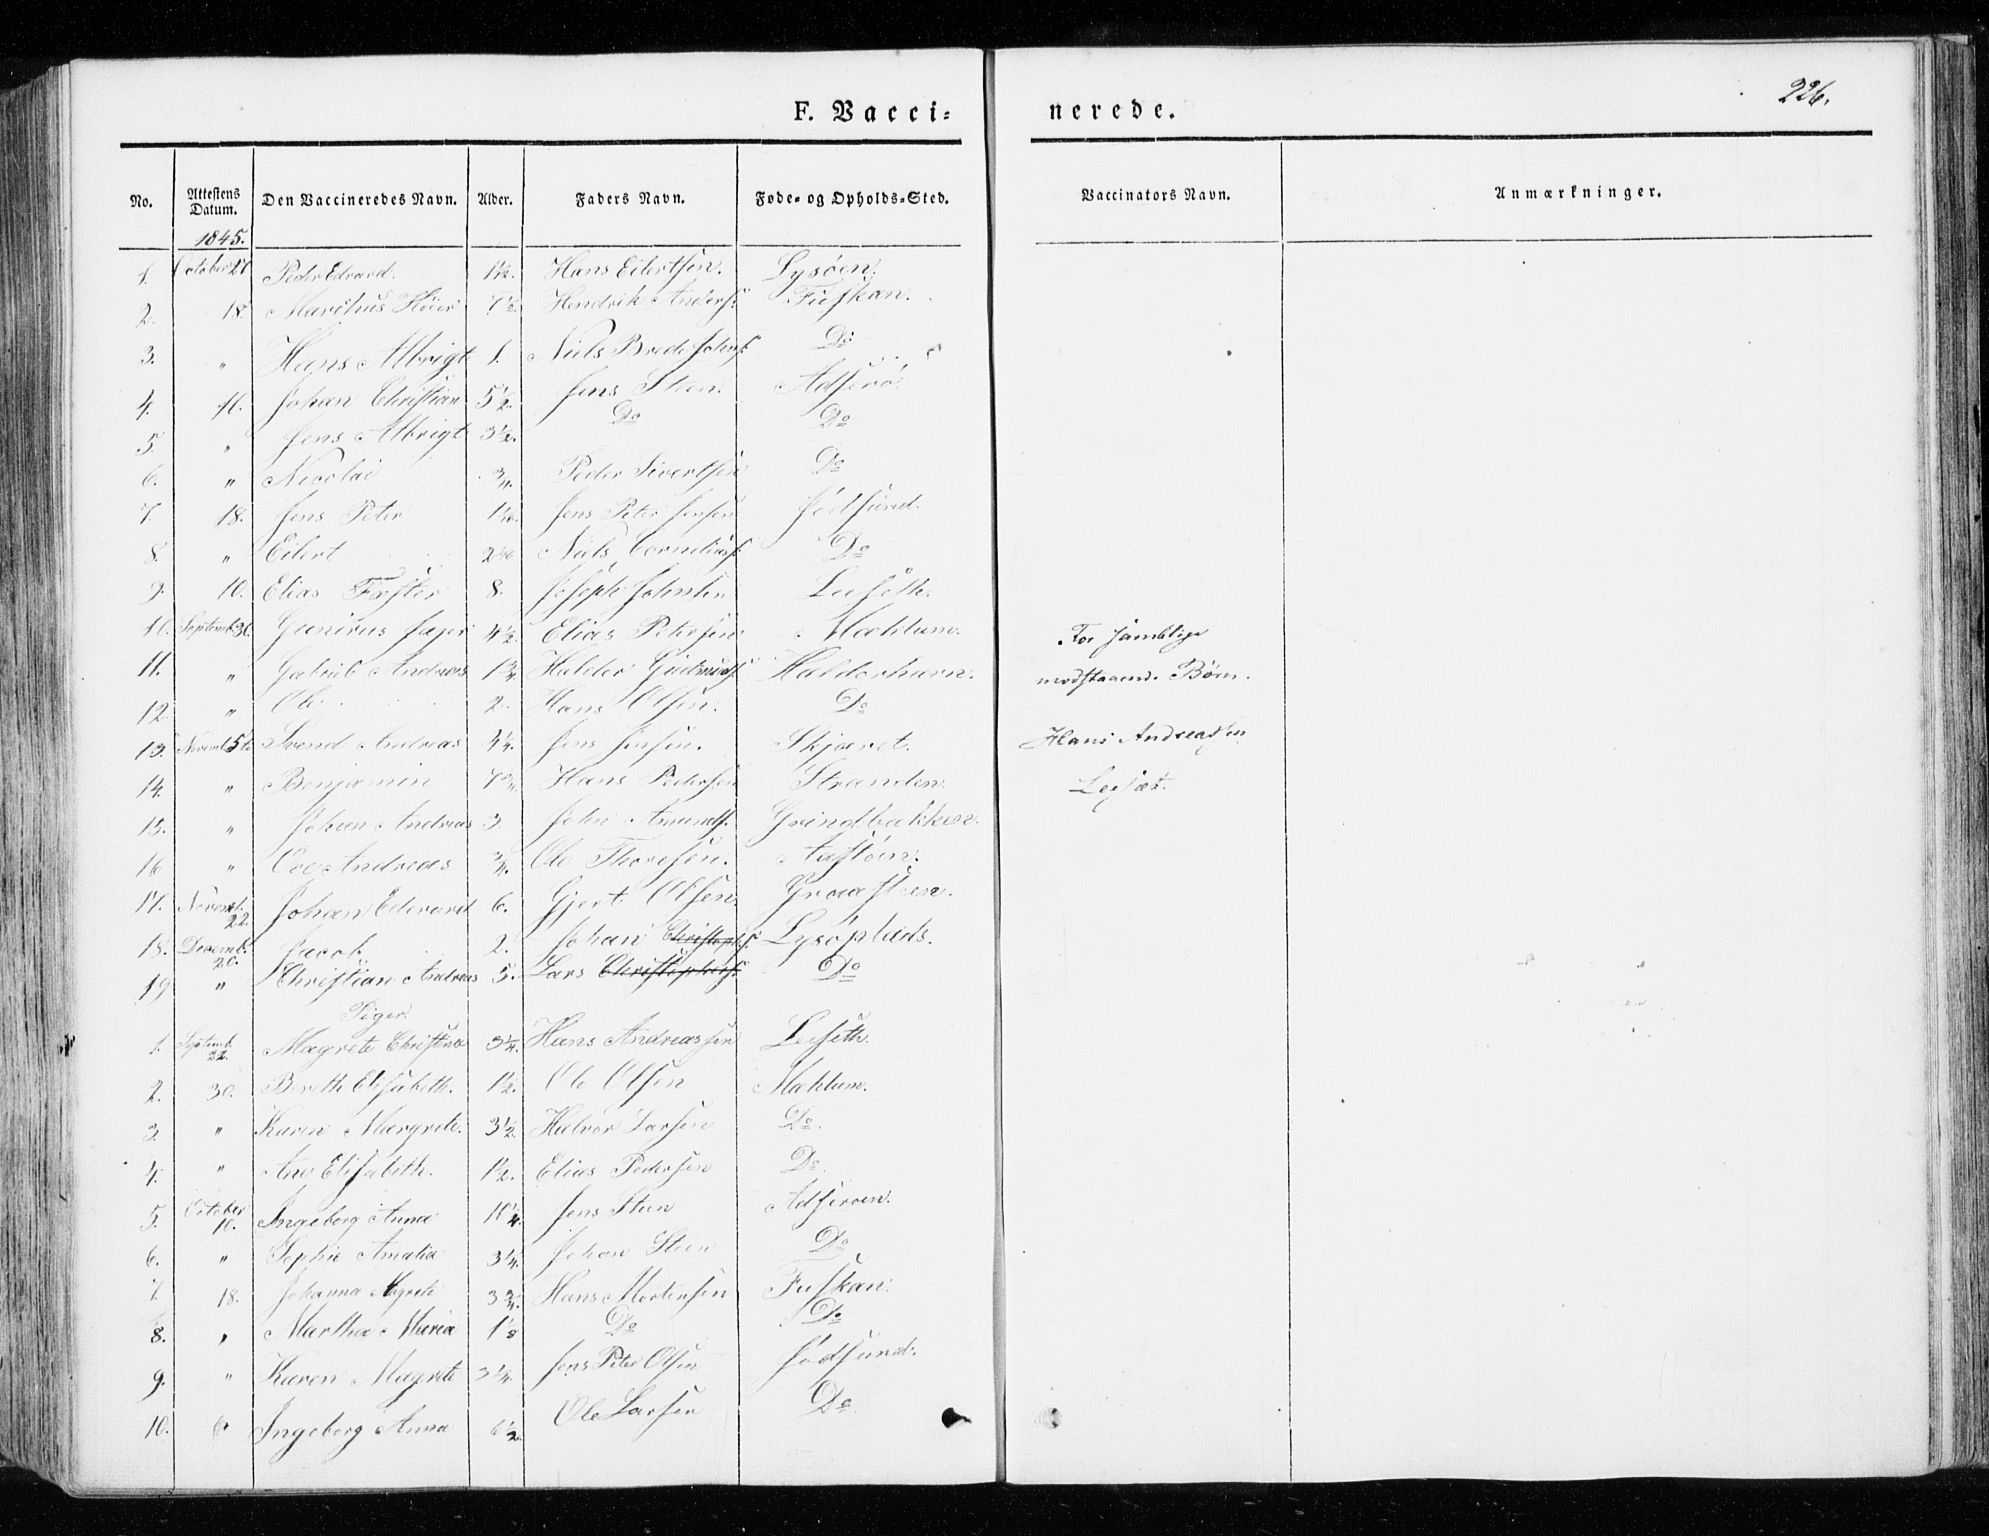 226.
F. Vacci= nerede.
No. Attestens Datum. Den Vaccineredes Navn. Alder. Faders Navn. Føde= og Opholds=Sted. Vaccinators Navn. Anmærkninger.
1845.
1. October Peder Edvard. 1½. Hans Eilertsen. Lysöen.
2. 18. Høier 7½. Hendrik Anders. Fuskan.
3. " Hans Albrigt 1. Niels Brede Johns. Do
4. 10. Johan Christian 5½. Jens Steen. Adserö.
5. " Jens Albrigt 3½. Do Do
6. " Nicolai ¾. Peder Sivertsen Do
7. 18. Jens Peter Jens Peter Jensen Jödsund.
8. " Eilert Niels Cornelius. Do
9. 10. Elias 8. Joseph Johnsen Leeseth.
10. Septemb. 30. 4½. Elias Petersen Maklum.
11. " Gabriel Andreas 1¾. Halder Halderhavn.
12. " Ole 2. Hans Olsen. Do
13. Novemb. Svend Andreas 4¼. Jens Jensen. Skjæret.
14. " Benjamin 7¾. Hans Pedersen Stranden.
15. " Johan Andreas 3. John Amunds. Grindbakken.
16 " Ove Andreas ¾. Ole Thoresen.
17. Novemb. 22. Johan Edevard 6. Gjert Olsen Graasteen.
18. Decemb. 20. Jacob 2. Johan Christophs. Lysöplads.
19 " Christian Andreas 5. Lars Christophers. Do
Piger.
1. Septemb. 22. Magrete Christine 3¼. Hans Andreassen Leeseth.
2. 30. Bereth Elisabeth. 1½. Ole Olsen Maklum.
3. " Karen Margrete. 3½. Halvor Larsen Do.
4. " Ane Elisabeth. 1½. Elias Pedersen Do.
5. October 10. Ingeborg Anna 10¼. Jens Steen Adseroen.
6. " Sophie Amalia 3¼. Johan Steen Do
7. 18. Johanna Mgrete 3¾. Hans Mortensen Fuskan.
8. " Martha Maria Do Do
9. " Karen Magrete 3¼. Jens Peter Olsen Jödsund.
10. Ingeborg Anna 6½. Ole Larsen Do.
For samtlige
modstaaende Börn.
Hans Andreassen
Leesæt.